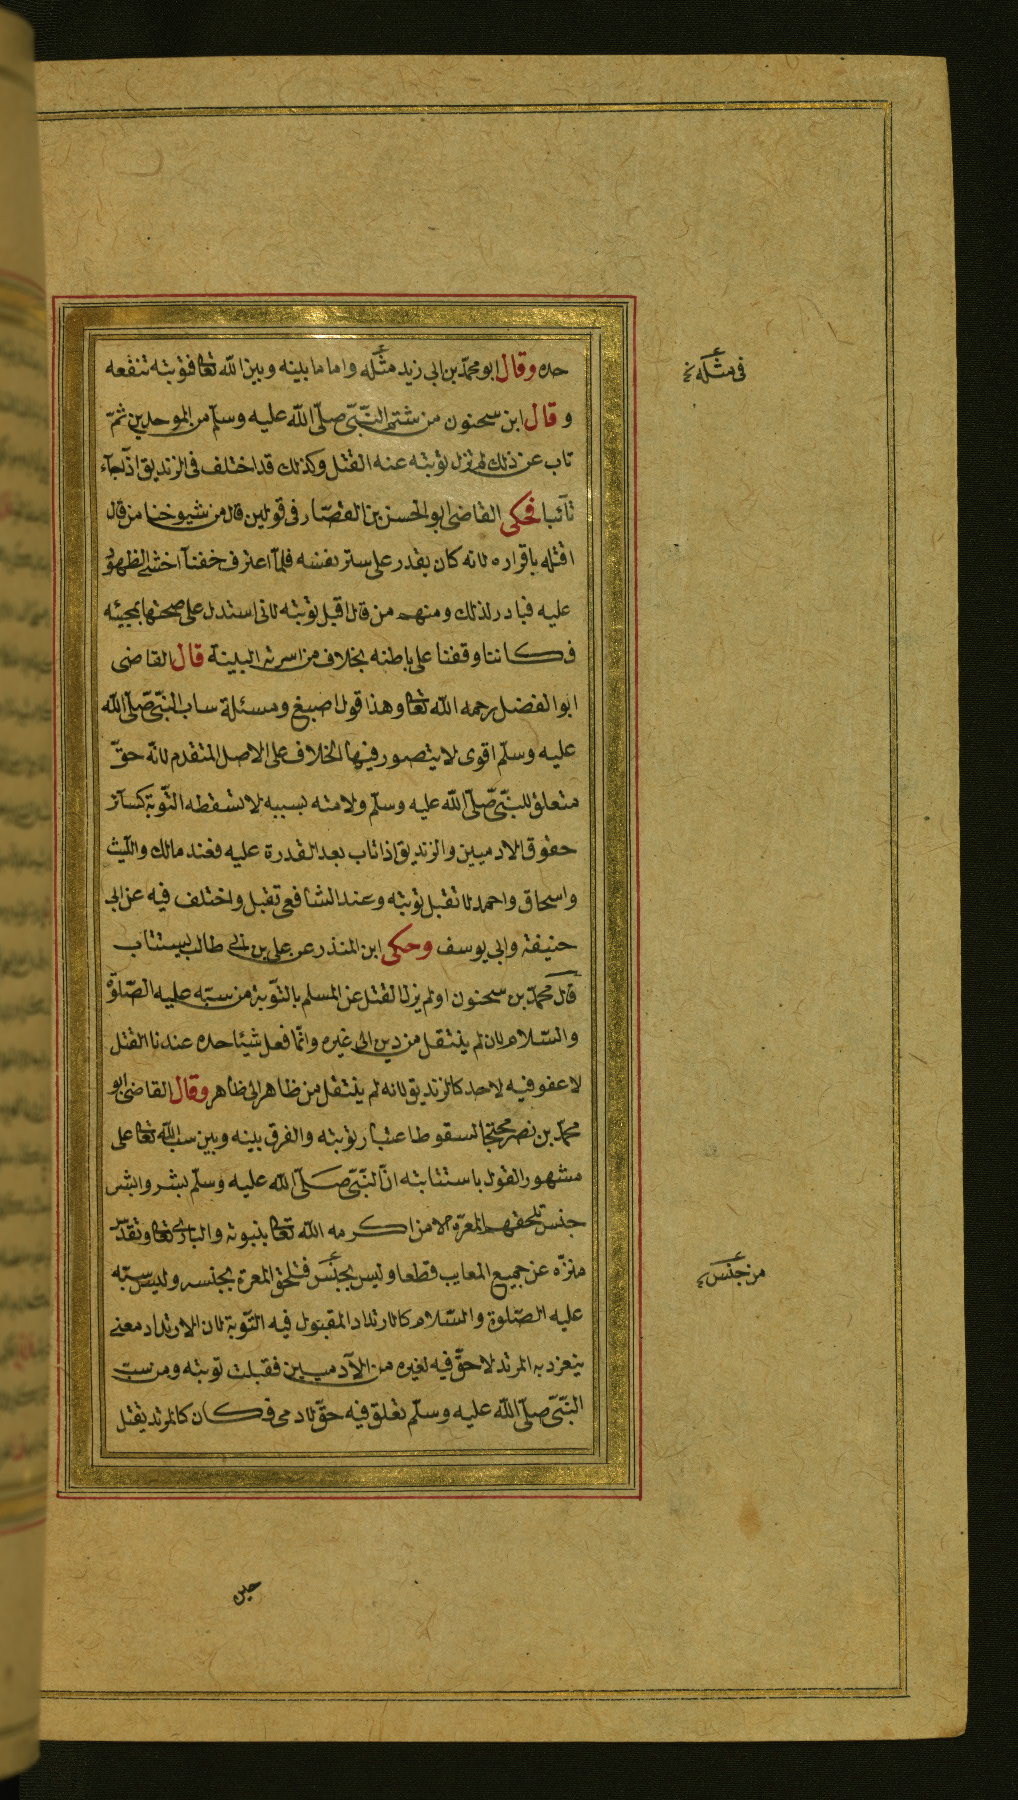 حده وقال ابو محمد بن ابى زيد مثله واما ما بينه وبين الله تعا فتوبته تنفعه
فى مثله نخ
وقال ابن سحنون من شتم النّبىّ صلّى الله عليه وسلّم من الموحدين ثمّ
تاب عن ذلك لم تزل توبته عنه القتل وكذلك قد اختلف فى الزنديق اذا جاء
تآئبا فحكى القاضى ابو الحسن بن القصّار فى قولين قال من شيوخنا من قال
اقتله باقراره لانه كان يقدر على ستر نفسه فلمّا اعترف خفنا انه خشى الظهور
عليه فبادر لذلك ومنهم من قال اقبل توبته لانى استدل على صحتها بمجيئه
فكاننا وقفنا على باطنه بخلاف من اسرته البينة قال القاضى
ابو الفضل رحمه الله تعا وهذا قول اصبغ ومسئلة ساب النّبىّ صلّى الله
عليه وسلّم اقوى لا يتصور فيها الخلاف على الاصل المتقدم لانّه حقّ
متعلق للنّبىّ صلّى الله عليه وسلّم ولامته بسببه لا تسقطه التّوبة كسآئر
حقوق الادميين والزنديق اذا تاب بعد القدرة عليه فعند مالك واللّيث
واسحاق واحمد لا تقبل توبته وعند الشافعى تقبل واختلف فيه عن ابى
حنيفة وابى يوسف وحكى ابن المنذر عن على بن ابى طالب يستتاب
قال محمّد بن سحنون ولم يزل القتل عن المسلم بالتّوبة من سبّه عليه الصّلوة
والسّلام لانه لم ينتقل من دين الى غيره وانّما فعل شيئا حده عندنا القتل
لا عفو فيه لاحد كالزنديق لانه لم ينتقل من ظاهر الى ظاهر وقال القاضى ابو
محمّد بن نصر محتجا لسقوط اعتبار توبته والفرق بينه وبين سب الله تعا على
مشهور القول باستتابته انّ النّبىّ صلّى الله عليه وسلّم بشر والبشر
جنس تلحقهم المعرّة الا من اكرمه الله تعا بنبوته والبارى تعا
منزّه عن جميع المعايب قطعا وليس بجنس فتلحق المعرة بجنسه وليس سبّه
من جنس
عليه الصّلوة والسّلام كالارتداد المقبول فيه التّوبة لان الارتداد معنى
ينفرد به المرتد لا حقّ فيه لغيره من الآدميين فقبلت توبته ومن سب
النّبىّ صلّى الله عليه وسلّم تعلّق فيه حقّ لادمى فكان كالمرتد يقتل
حين